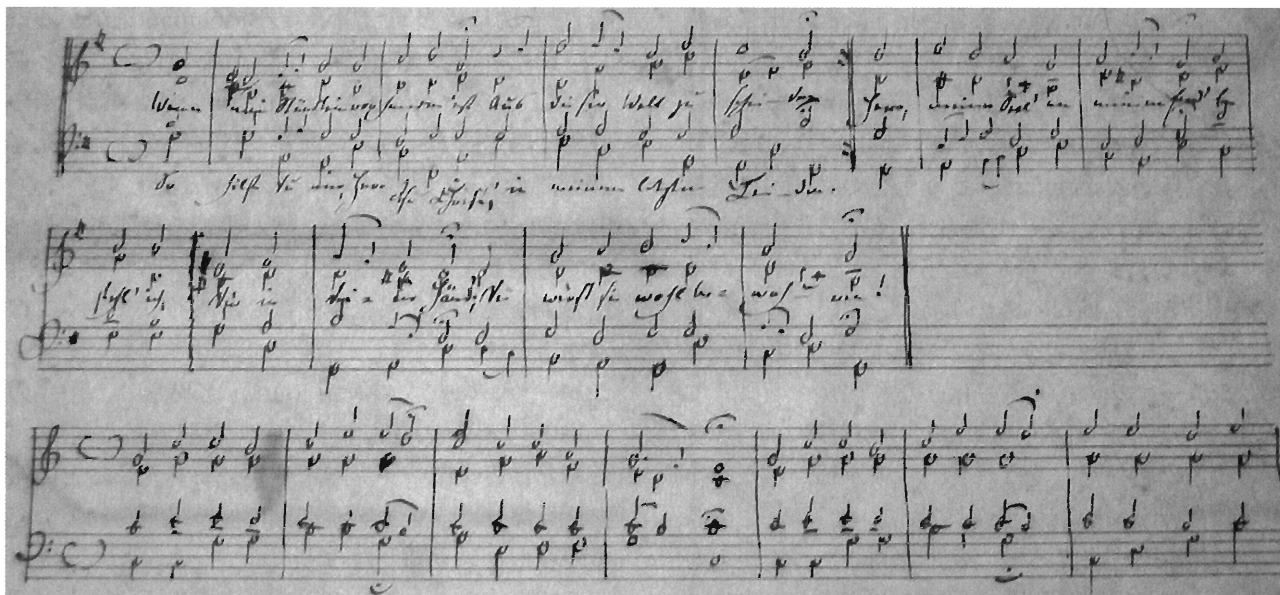 Wenn mein Stündlein vorhanden ist Aus dieser Welt zu schei-den Herr, meine Seel' an meinem End' be
So hilf Du mir, Herr Jesu Christ, in meinem letzten Lei-den.
fehl' ich, Dir in dei-ne Händ', Du wirst sie wohl be-wah-ren!